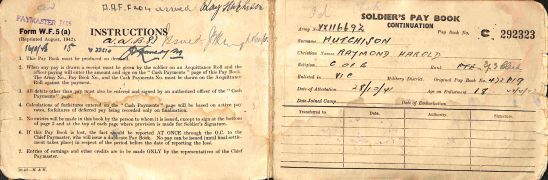 PAYMASTER
Form W.F. 5 (a)
(Reprinted August, 1942).
INSTRUCTIONS
1. This Pay Book must be produced on demand.
2. When any pay is drawn a receipt must be given by the soldier on an Acquittance Roll and the officer paying will enter the amount and sign on the "Cash Payments" page of this Pay Book. The Army No., Pay Book No. and the Cash Payments No. must be shown on the Acquittance Roll against the payment.
3. All debits other than pay must also be entered and signed by an authorised officer of the "Cash Payments" page.
4. Calculations of forfeitures entered on the "Cash Payments" page will be based on active pay rates, forfeitures of deferred pay being recorded only on finalisation.
5. No entries will be made in this book by the person to whom it is issued, except to sign at the bottom of page 2 and at the top of each page where provision is made for Soldier's Signature.
6. If this Pay Book is lost, the fact should be reported AT ONCE through the O.C. to the Chief Paymaster, who will issue a duplicate Pay Book. No pay can be issued (until lead settlement takes place) in respect of the period before the date of reporting the loss.
7. Entries of earnings and other credits are to be made ONLY by the representatives of the Chief Paymaster.
SOLDIER'S PAY BOOK
CONTINUATION
Army No. VX116692 Pay Book No. C 292323
Surname HUTCHISON
Christian Names RAYMOND HAROLD
Religion C OF E
Enlisted in VIC Military District. Original Pay Book No.
Date of Attestation 28/10/41 Age on Enlistment 18
Date Joined Camp Date of Embarkation
Transferred to Date Transferred to Date